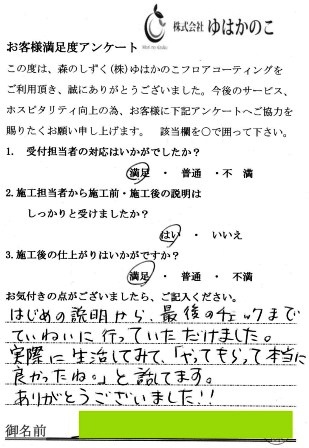 株式会社 ゆはかのこ
お客様満足度アンケート
この度は、森のしずく(株)ゆはかのこフロアコーティングを
ご利用頂き、誠にありがとうございました。今後のサービス、
ホスピタリティ向上の為、お客様に下記アンケートへご協力を
賜りたくお願い申し上げます。 該当欄を○で囲って下さい。
1. 受付担当者の対応はいかがでしたか?
満足 ・ 普通 ・ 不 満
2.施工担当者から施工前・施工後の説明は
しっかりと受けましたか?
はい ・ いいえ
3.施工後の仕上がりはいかがですか?
満足 ・ 普通 ・ 不満
お気付きの点がございましたら、ご記入ください。
はじめの説明から、最後のチェックまで
ていねいに行っていただけました。
実際に生活してみて、「やってもらって本当に
良かったね。」と話してます。
ありがとうございました!!
御名前